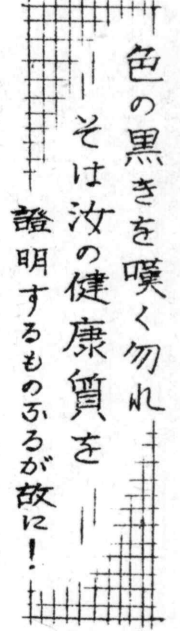 色の黒きを嘆く勿れ
そは汝の健康質を
證明するものなるが故に!